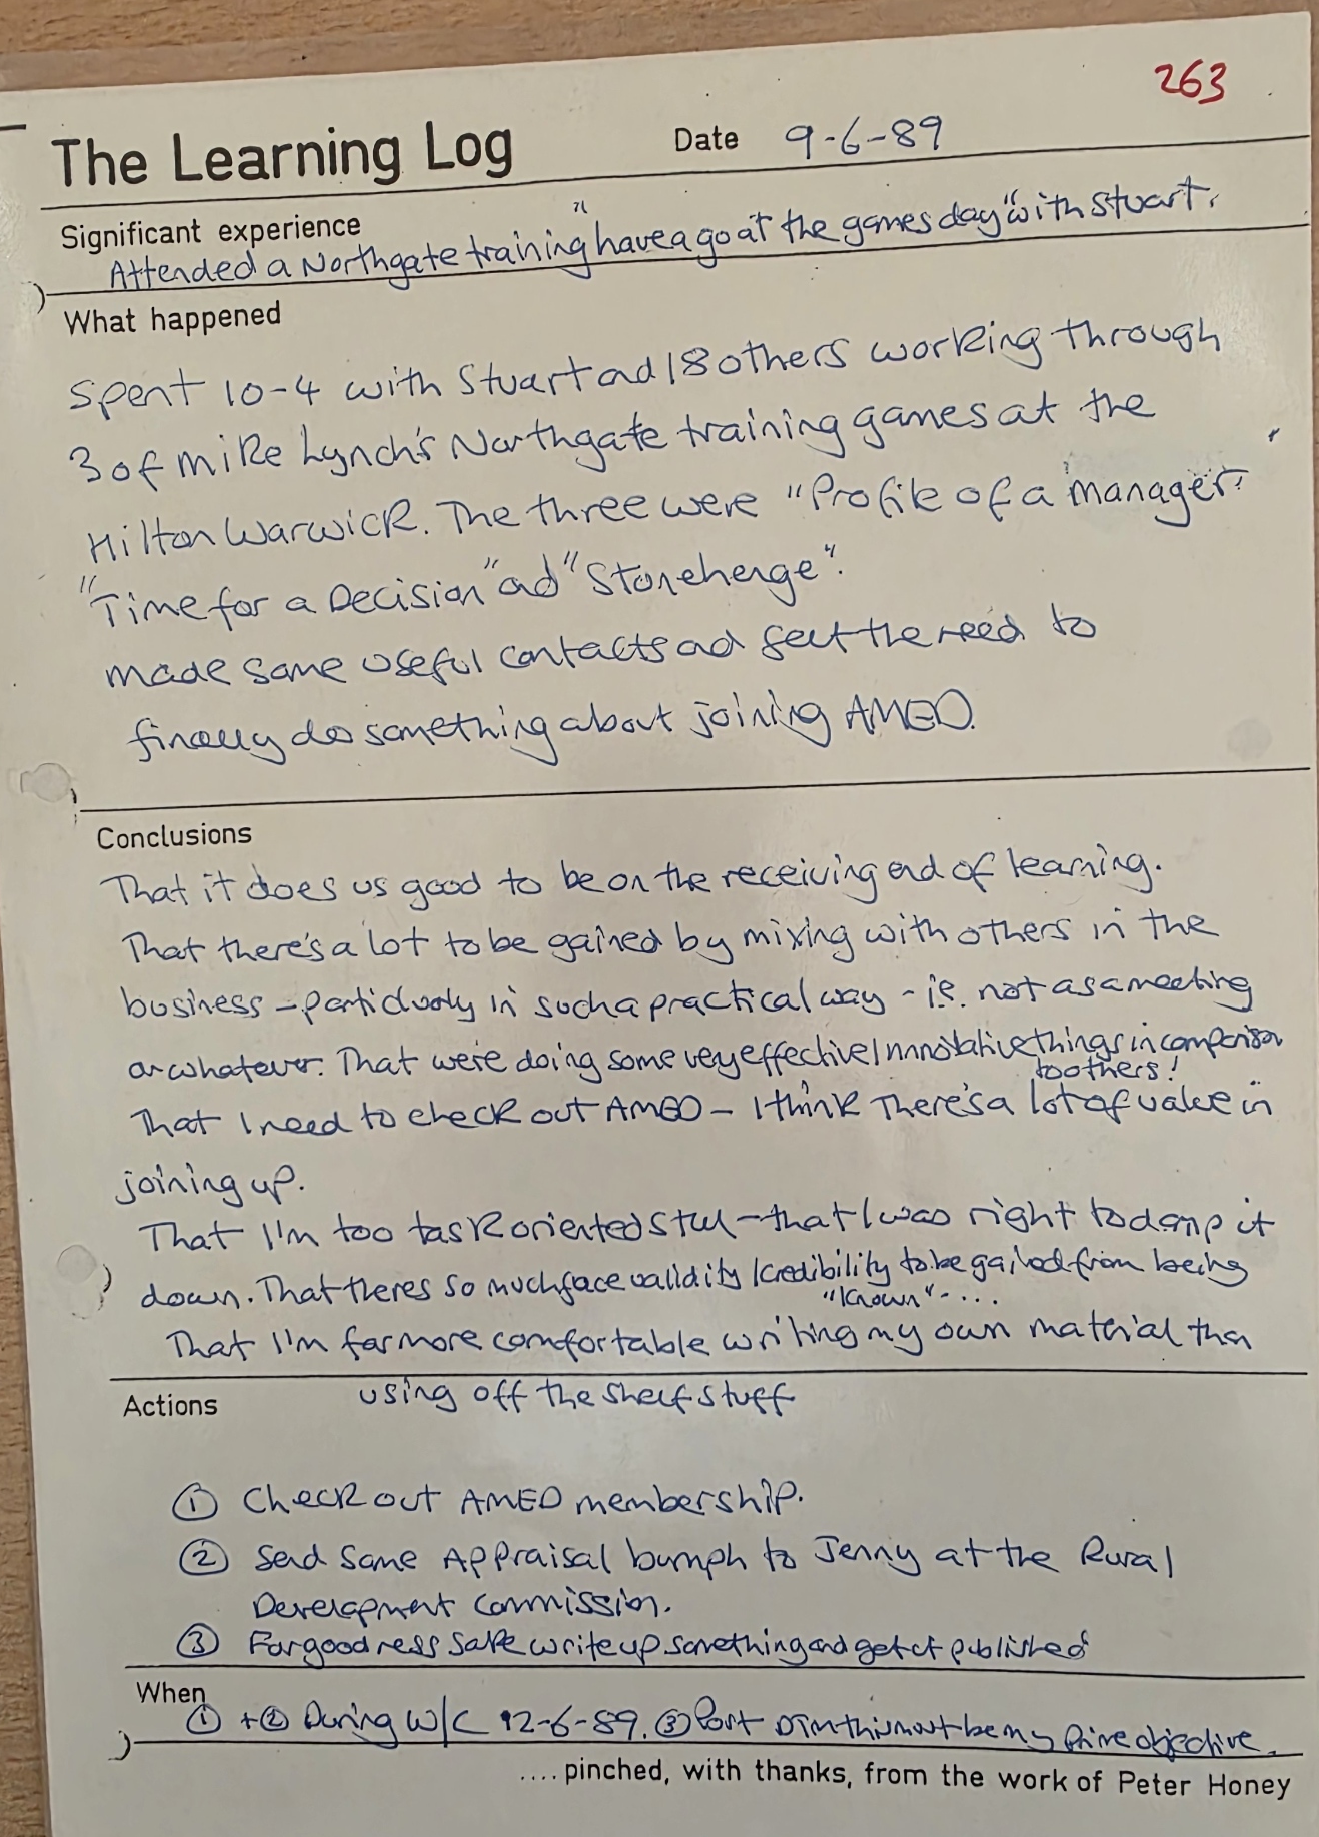 263
The Learning Log Date 9-6-89
Significant experience
Attended a Northgate training "have a go at the games day" with Stuart.
What happened
Spent 10-4 with Stuart ad 18 others working through
3 of mike Lynch's Northgate training games at the
Hilton Warwick. The three were "Profile of a manager"
"Time for a Decision" ad "Stonehenge".
made some useful contacts ad felt the need to
finally do something about joining AMED.
Conclusions
That it does us good to be on the receiving end of learning.
That there's a lot to be gained by mixing with others in the
business - particularly in such a practical way - i.e. not as a meeting
or whatever. That we're doing some very effective/innovative things in comparison
to others!
That I need to check out AMED - I think There's a lot of value in
joining up.
That I'm too task oriented still - that I was right to damp it
down. That theres so much face validity/credibility to be gained from being
"known"....
That I'm far more comfortable writing my own material than
using off the shelf stuff
Actions
① Check out AMED membership.
② Send some Appraisal bumph to Jenny at the Rural
Development Commission.
③ For goodness sake write up something and get it published
When
① + ② During W/C 12-6-89. ③ Post this must be my prime objective.
.... pinched, with thanks, from the work of Peter Honey